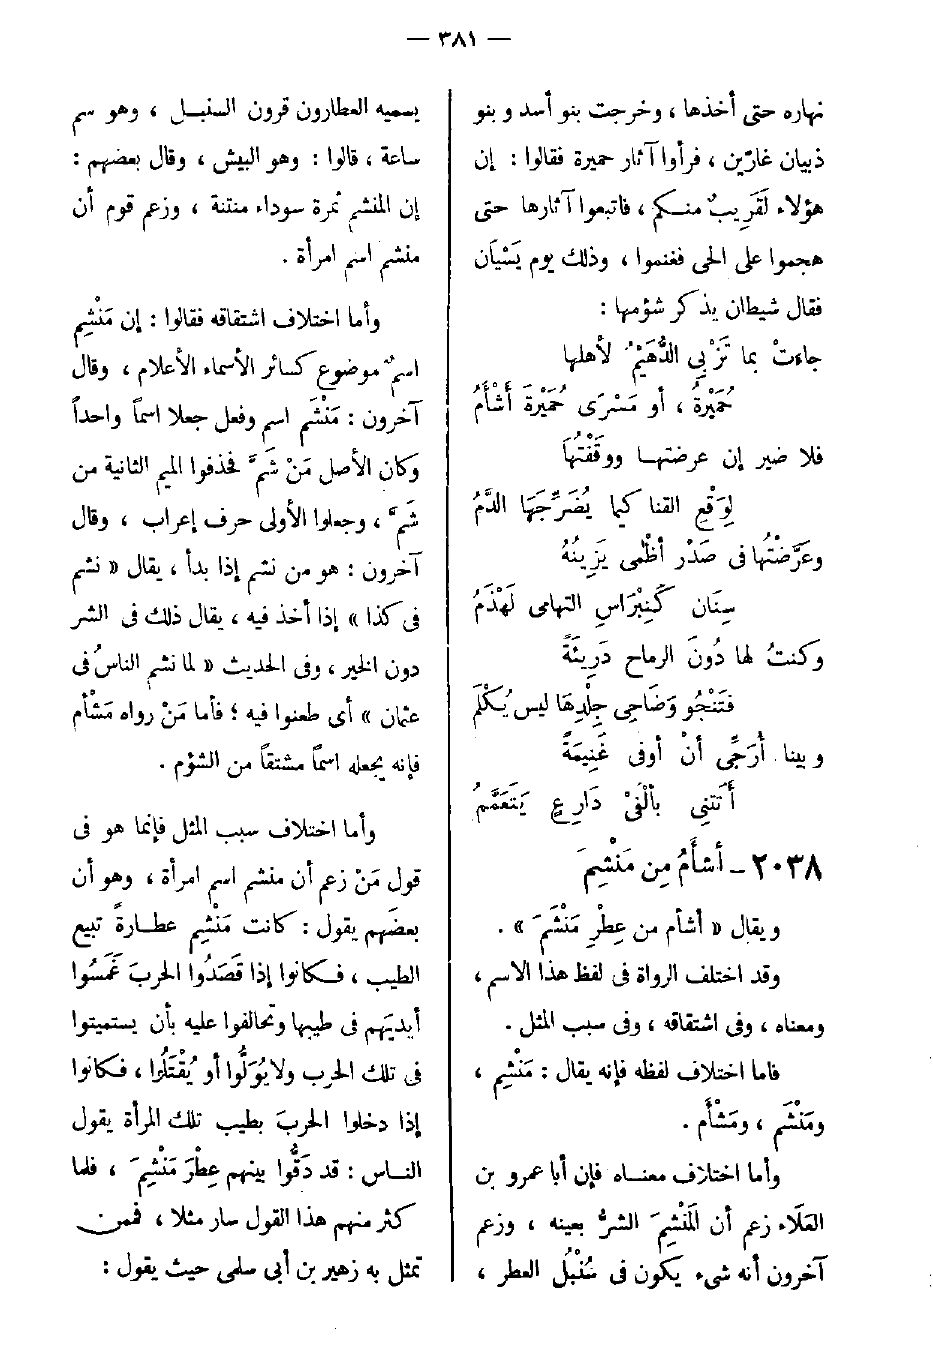 — ٣٨١ —
نهاره حتى أخذها ، وخرجت بنو أسد و بنو
ذبيان غارّين ، فرأوا آثار حميرة فقالوا : إن
هؤلاء لَقَرِيبٌ منكم ، فاتبعوا آثارها حتى
هجموا على الحى فغنموا ، وذلك يوم يَسْيَان
فقال شيطان يذكر شؤمها :
جاءتْ بما تَزْبِى الدُّهَيْمُ لأهلها
حُمَيْرَةُ ، أو مَسْرَى حُمَيْرَةَ أَشْأَمُ
فلا ضير إن عرضتها ووقَفْتُهَا
لِوَقْعِ القنا كيما يُضَرِّجَهَا الدَّمُ
وعَرَّضْتُها فى صَدْر أظْمى يَزِينُهُ
سِنَان كَنِبْرَاسِ التهامى لَهْذَمُ
وكنتُ لها دُونَ الرماح دَرِيئَةً
فَتَنْجُو وَضَاحِى جِلْدِهَا ليس يُكْلَمُ
وبينا أُرَجِّى أنْ أوفى غَنِيمَةً
أَتَتْنِى بألْفَىْ دَارِعٍ يَتَعَمَّمُ
٢٠٣٨ ـ أشأَمُ مِن مَنْشِمَ
ويقال « أشأم من عِطْرِ مَنْشَمَ » .
وقد اختلف الرواة فى لفظ هذا الاسم ،
ومعناه ، وفى اشتقاقه ، وفى سبب المثل .
فاما اختلاف لفظه فإنه يقال : مَنْشِم ،
ومَنْشَم ، ومَشْأَم .
وأما اختلاف معناه فإن أبا عمرو بن
العَلَاء زعم أن المَنْشِمَ الشرُّ بعينه ، وزعم
آخرون أنه شىء يكون فى سُنْبُل العطر ،
يسميه العطارون قرون السنبل ، وهو سم
ساعة ، قالوا : وهو البيش ، وقال بعضهم :
إن المنشم ثمرة سوداء منتنة ، وزعم قوم أن
منشم اسم امرأة .
وأما اختلاف اشتقاقه فقالوا : إن مَنْشِم
اسمٌ موضوع كسائر الأسماء الأعلام ، وقال
آخرون : مَنْشَم اسم وفعل جعلا اسمًا واحداً
وكان الأصل مَنْ شَمَّ فحذفوا الميم الثانية من
شَمَّ ، وجعلوا الأولى حرف إعراب ، وقال
آخرون : هو من نشم إذا بدأ ، يقال « نشم
فى كذا » إذا أخذ فيه ، يقال ذلك فى الشر
دون الخير ، وفى الحديث « لما نشم الناسُ فى
عثمان » أى طعنوا فيه ؛ فأما مَنْ رواه مَشْأم
فإنه يجعله اسمًا مشتقاً من الشؤم .
وأما اختلاف سبب المثل فإنما هو فى
قول مَنْ زعم أن منشم اسم امرأة ، وهو أن
بعضَهم يقول : كانت مَنْشِم عطارةً تبيع
الطيب ، فكانوا إذا قَصَدُوا الحربَ غَمَسُوا
أيديَهم فى طيبها وتحالفوا عليه بأن يستميتوا
فى تلك الحرب ولا يُوَلُّوا أو يُقْتَلُوا ، فكانوا
إذا دخلوا الحربَ بطيب تلك المرأة يقول
الناس : قد دَقُّوا بينهم عِطْرَ مَنْشِمَ ، فلما
كثر منهم هذا القول سار مثلا ، فممن
تمثل به زهير بن أبى سلمى حيث يقول :